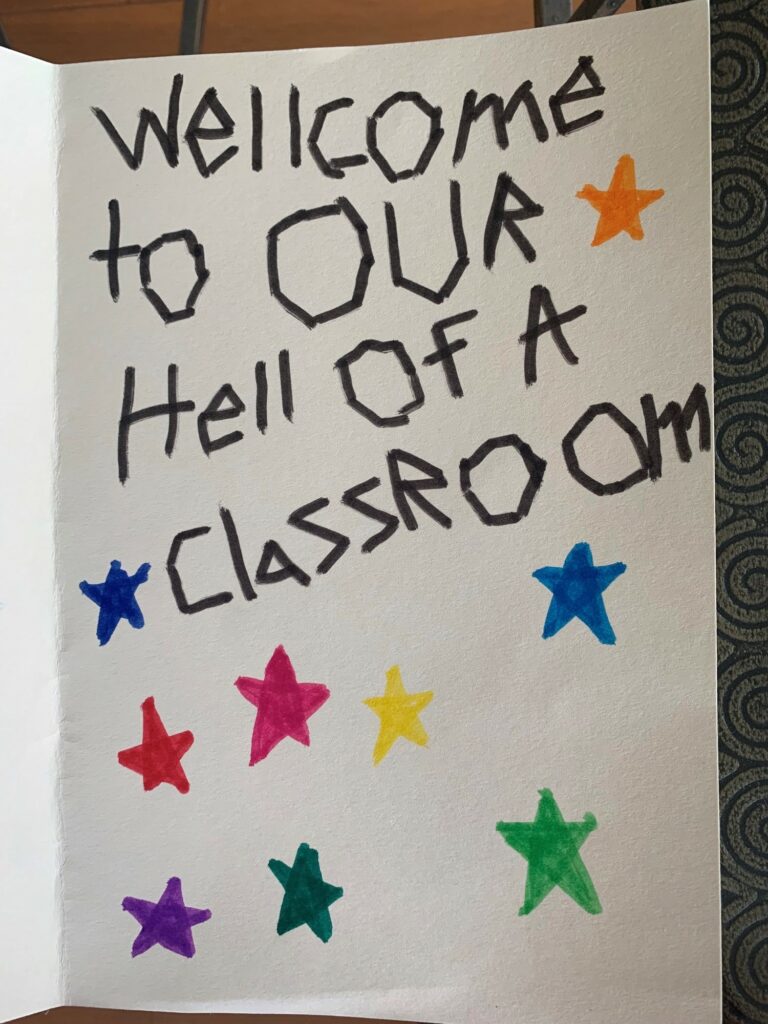 Wellcome
to OUR
Hell Of A
ClassROOm